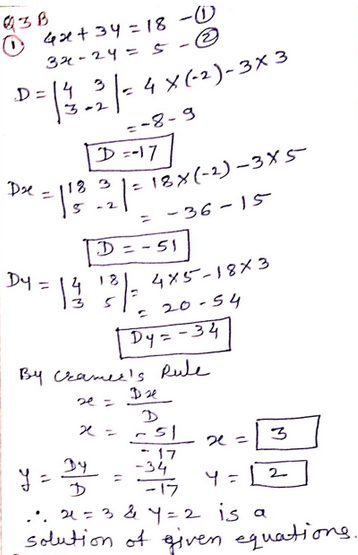 Q3B
① 4x + 3y = 18 - ①
3x - 2y = 5 - ②
D = |4 3| = 4 × (-2) - 3 × 3
|3 -2|
= -8 - 9
D = -17
Dx = |18 3| = 18 × (-2) - 3 × 5
|5 -2|
= -36 - 15
D = -51
Dy = |4 18| = 4×5 - 18×3
|3 5|
= 20 - 54
Dy = -34
By Cramer's Rule
x = Dx/D
x = -51/-17 x = 3
y = Dy/D = -34/-17 y = 2
∴ x = 3 & y = 2 is a
solution of given equations.